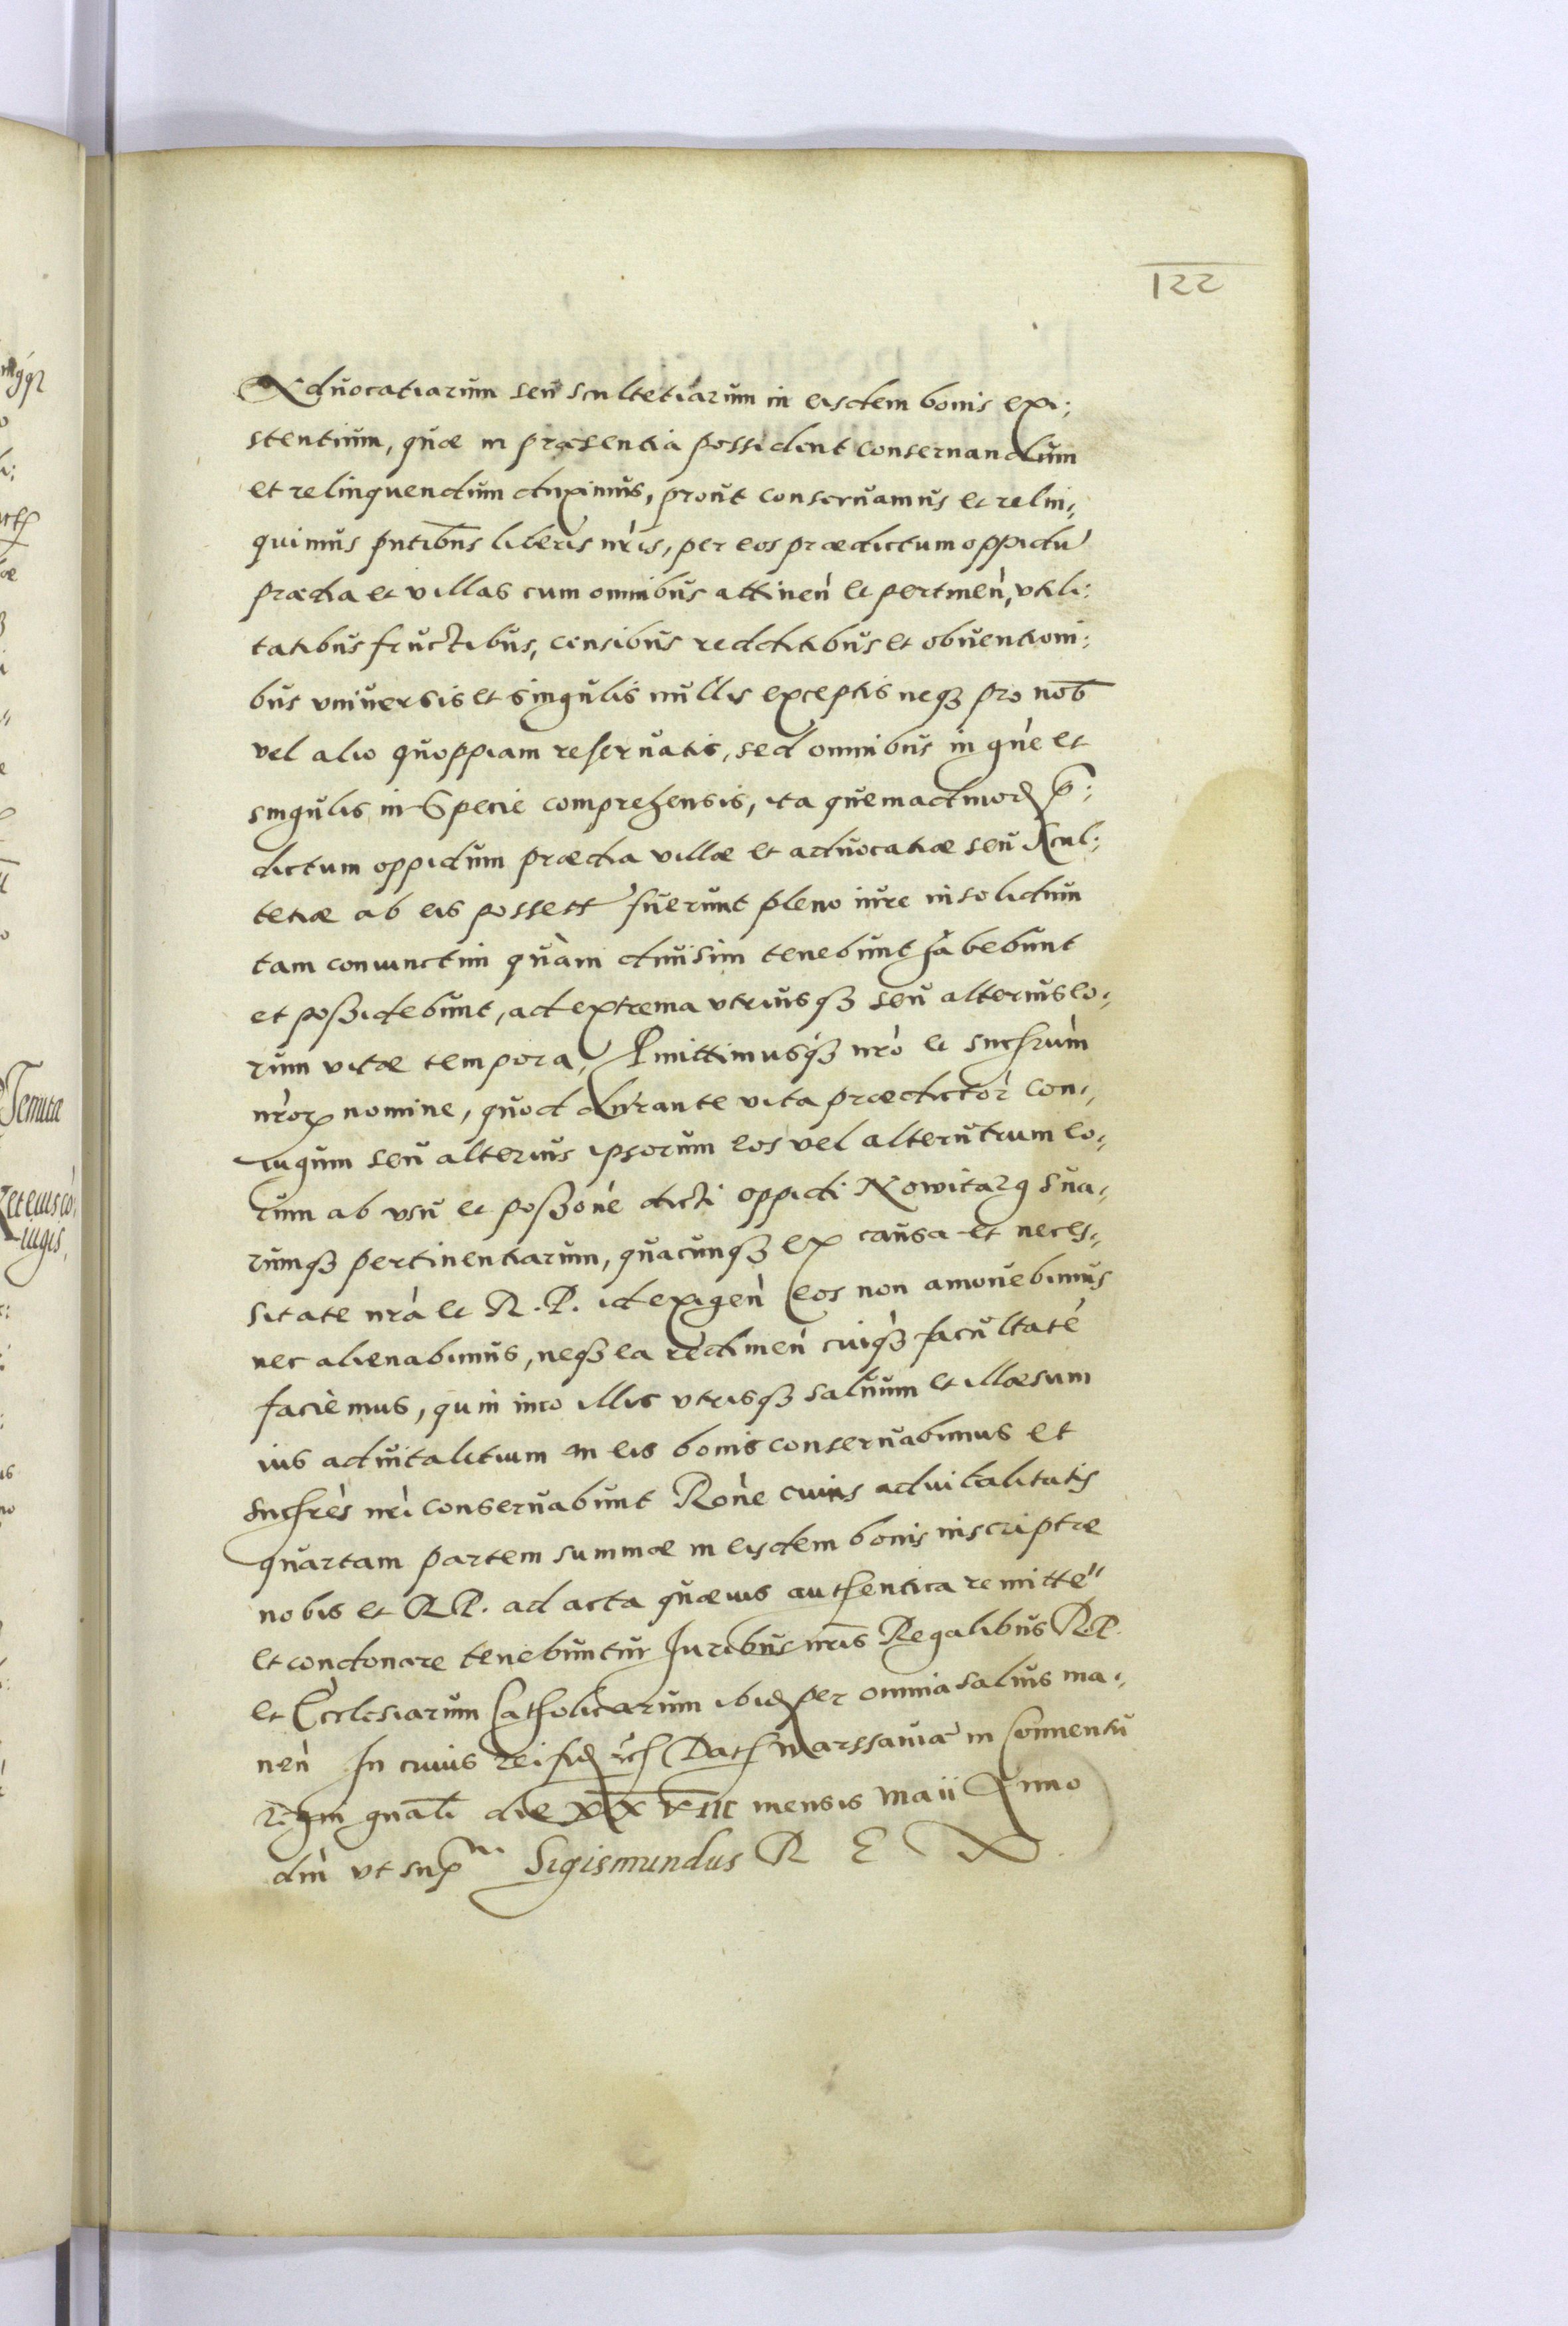 122
Aduocatiarum seu scultetiarum in eisdem bonis exi:
stentium, quæ in præsentia possident conseruandum
et relinquendum duximus, prout conseruamus et relin:
quimus pntibus liberis nris, per eos prædictum oppidu
prædia et villas cum omnibus attinen et pertinen, vtili:
tatibus fructibus, censibus redditibus et obuentioni:
bus vniuersis et singulis nullis exceptis neq3 pro nob
vel alio quoppiam reseruatis, sed omnibus in gne et
singulis in Specie comprehensis, ita quemadmod p:
dictum oppidum prædia villæ et aduocatiæ seu scul:
tetiæ ab eis possess fuerunt pleno iure insolidum
tam coniunctim quàm diuisim tenebunt habebunt
et possidebunt, ad extrema vtriusq3 seu alterius eo:
rum vitæ tempora, Pmittimusq3 nro et succrum
nror nomine, quod durante vita prædictor con:
iugum seu alterius ipsorum eos vel alterutrum eo:
rum ab vsu et possone dicti oppidi Nowitarg sua:
rumq3 pertinentiarum, quacunq3 ex causa et neces:
sitate nra et R. P. id exigen eos non amouebimus
nec alienabimus, neq3 ea redimen cuiq3 facultate
faciemus, quin imo illis vtrisq3 saluum et illæsum
ius aduitalitium in eis bonis conseruabimus et
succres nri conseruabunt Rone cuius aduitalitatis
quartam partem summæ in eisdem bonis inscriptæ
nobis et R P. ad acta quæuis authentica remitte
et condonare tenebuntur Juribus nris Regalibus R. P.
et Ecclesiarum Catholicarum ibid per omnia saluis ma:
nen In cuius rei fid etc Dat Warssauiæ in Conuentu
regni gnali die XXVIII mensis Maii Anno
dni vt sup Sigismundus R E X.
Tenuta
et eius co:
iugis,